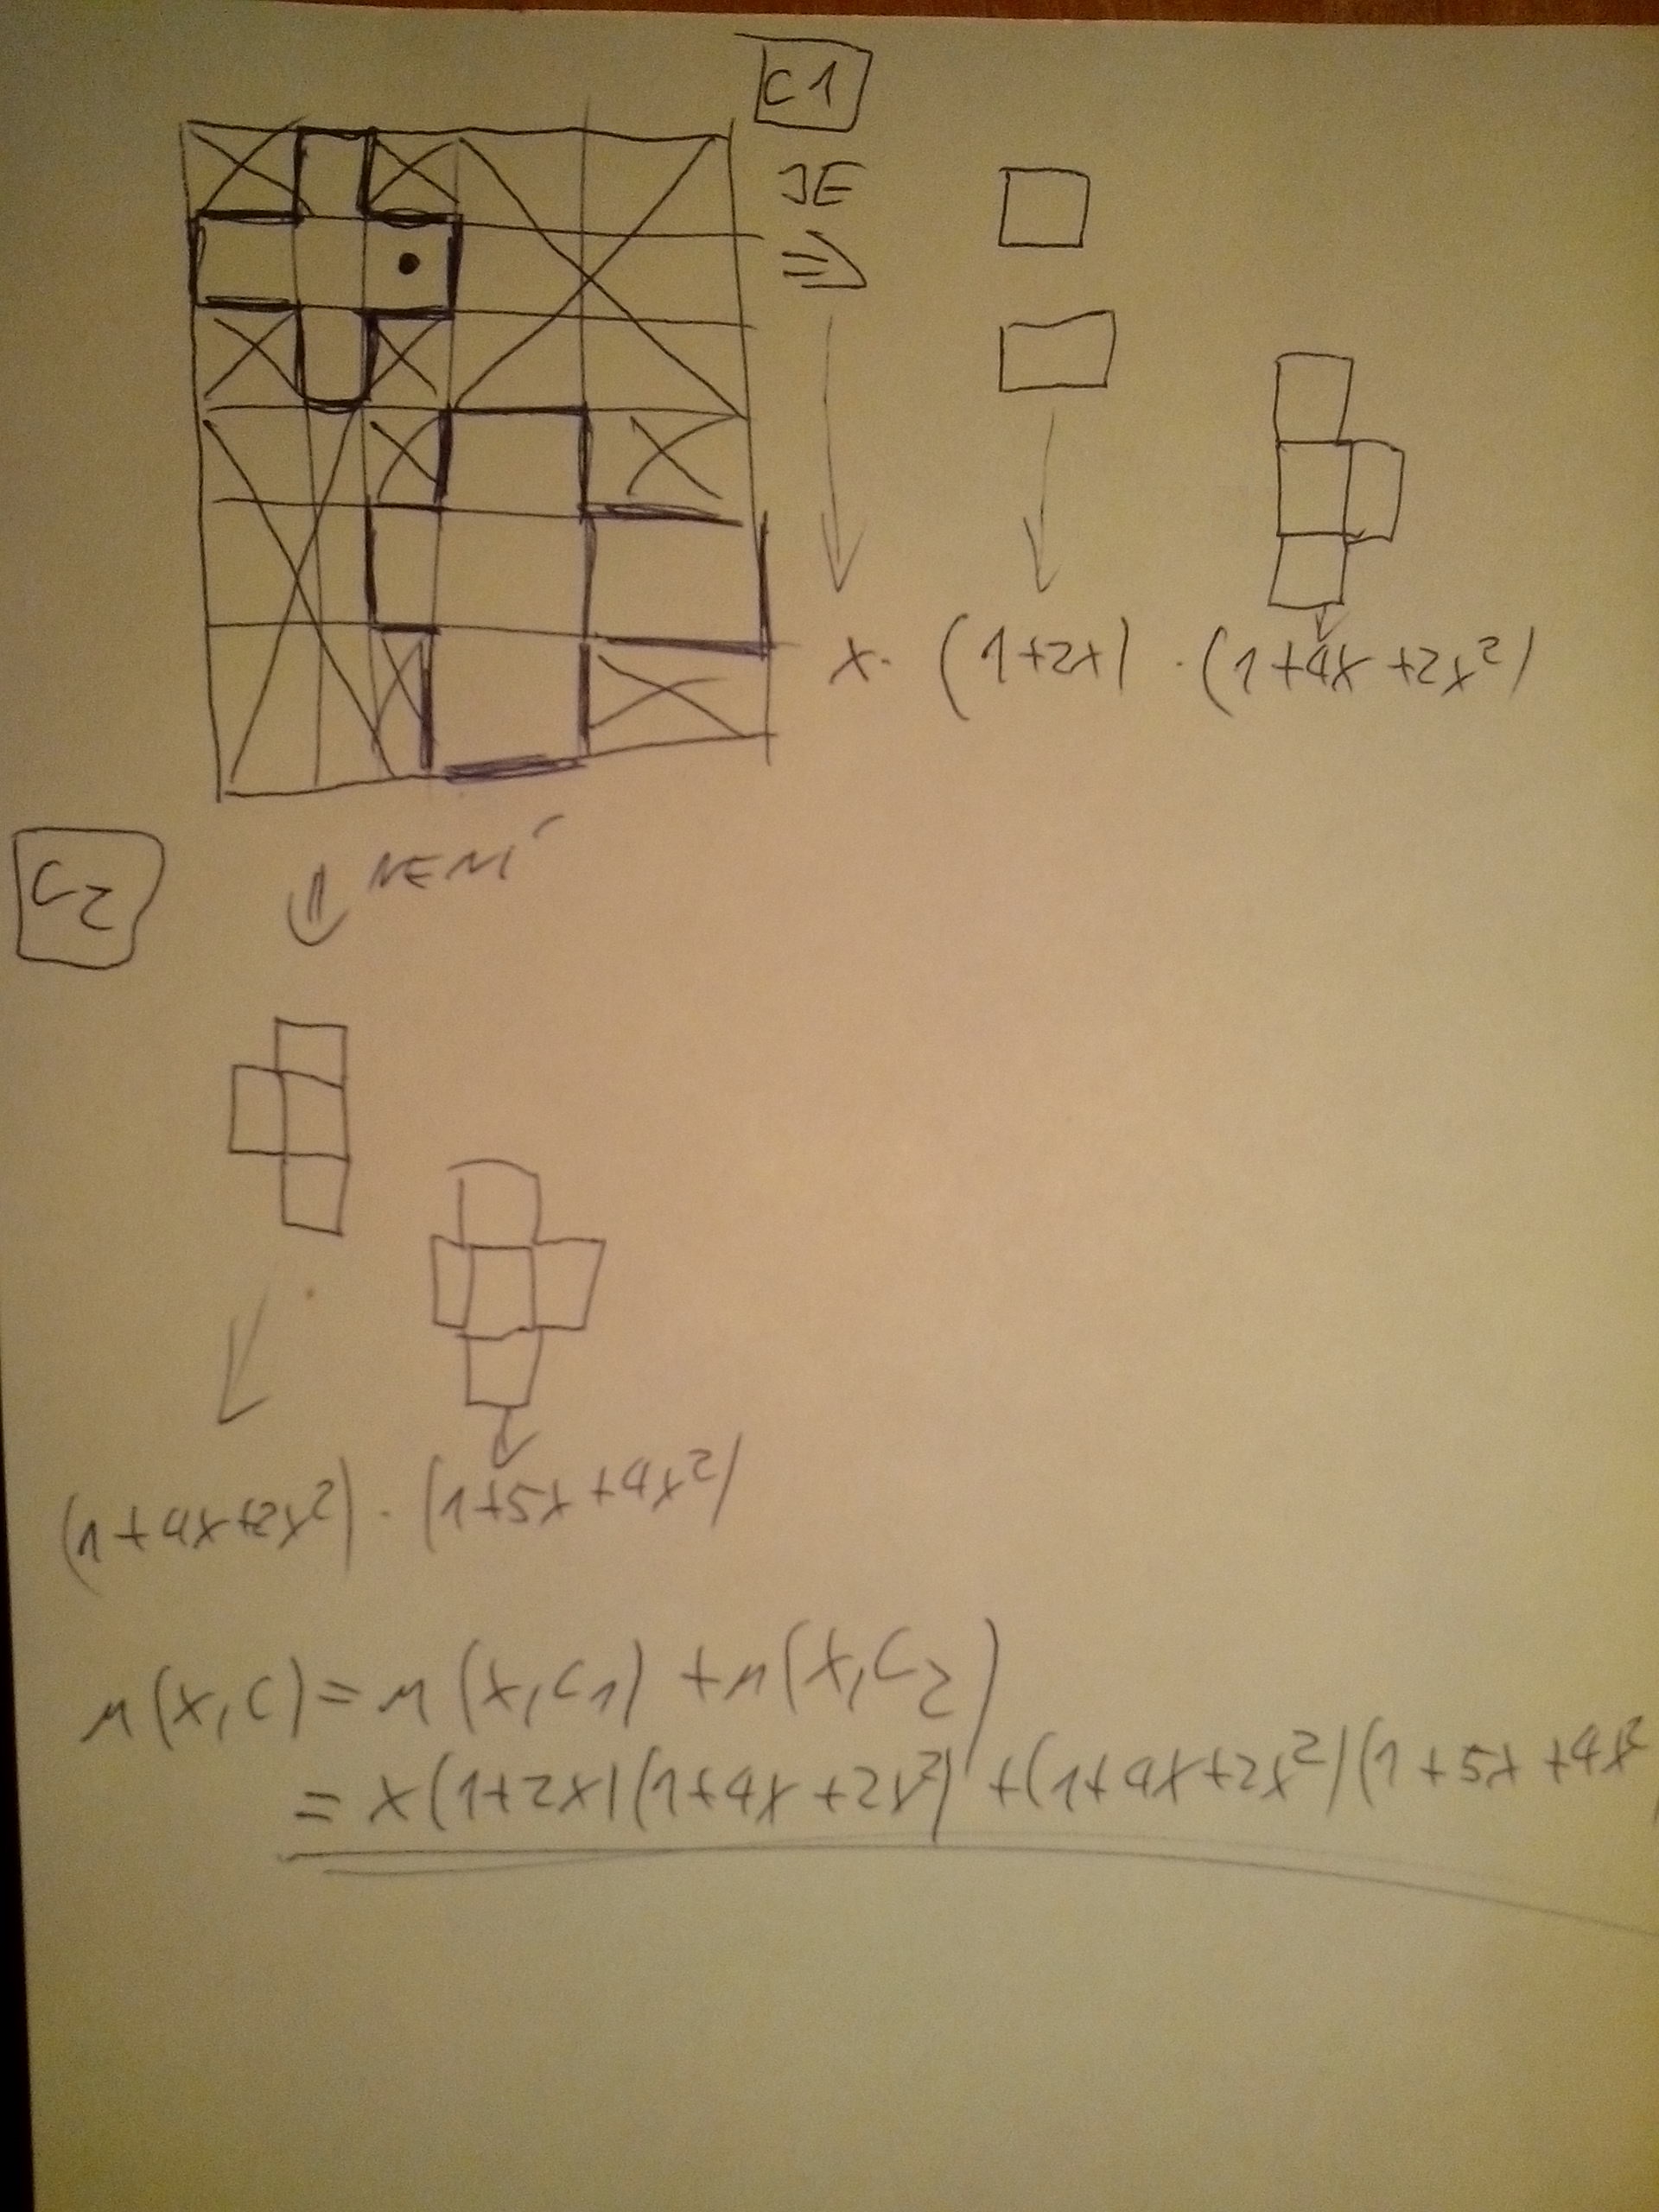 C1
JE
⇒
x · (1+2x) · (1+4x+2x²)
C2
⇓ NENÍ
(1+4x+2x²) · (1+5x+4x²)
r(x,C) = r(x,C1) + r(x,C2)
= x(1+2x)(1+4x+2x²) + (1+4x+2x²)(1+5x+4x²